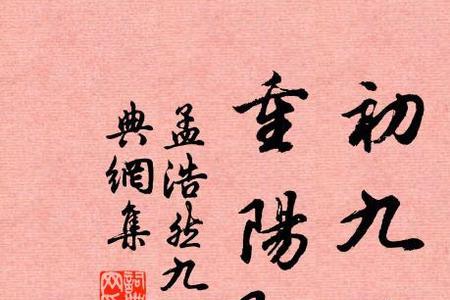 初九
重陽
孟浩然九
典網集